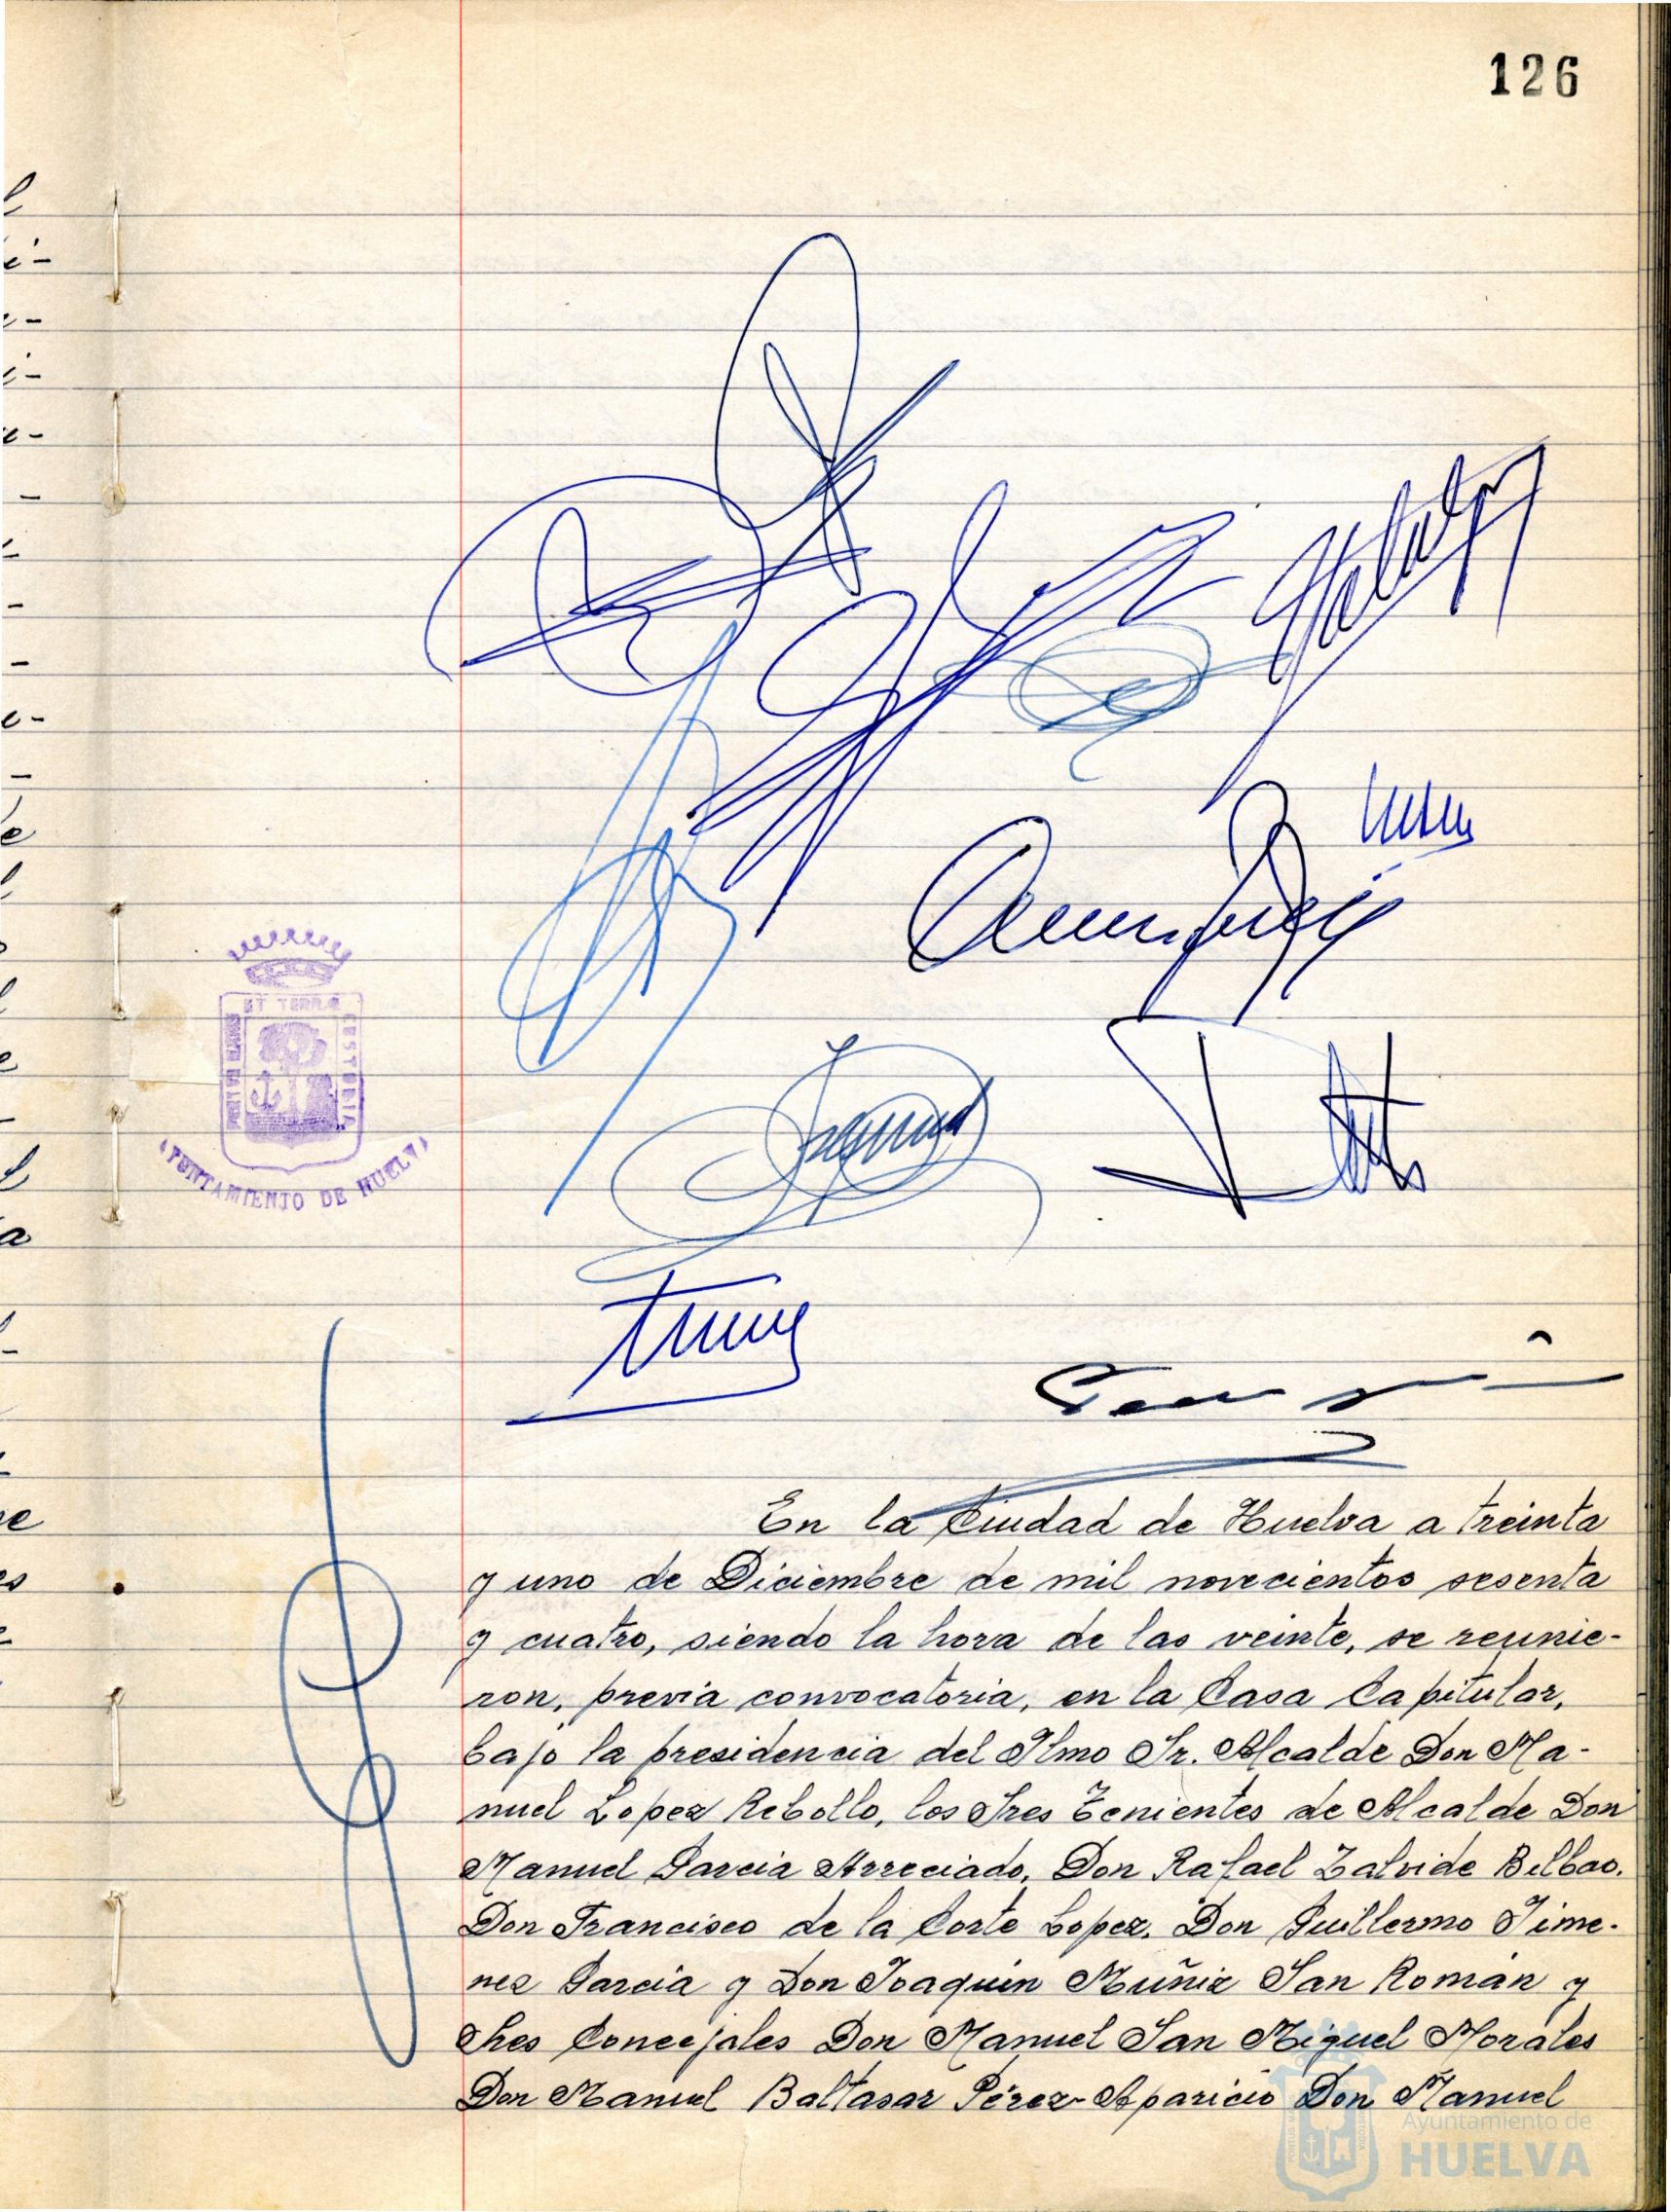 126
ET TERRÆ
PORTUS MARIS
CUSTODIA
AYUNTAMIENTO DE HUELVA
En la Ciudad de Huelva a treinta
y uno de Diciembre de mil novecientos sesenta
y cuatro, siendo la hora de las veinte, se reunie-
ron, previa convocatoria, en la Casa Capitular,
bajo la presidencia del Ilmo Sr. Alcalde Don Ma-
nuel Lopez Rebollo, los Sres Tenientes de Alcalde Don
Manuel Garcia Arreciado, Don Rafael Zalvide Bilbao.
Don Francisco de la Corte Lopez. Don Guillermo Jime-
nez Garcia y Don Joaquin Muñiz San Román y
Sres Concejales Don Manuel San Miguel Morales
Don Manuel Baltasar Pérez-Aparicio Don Manuel
Ayuntamiento de
HUELVA